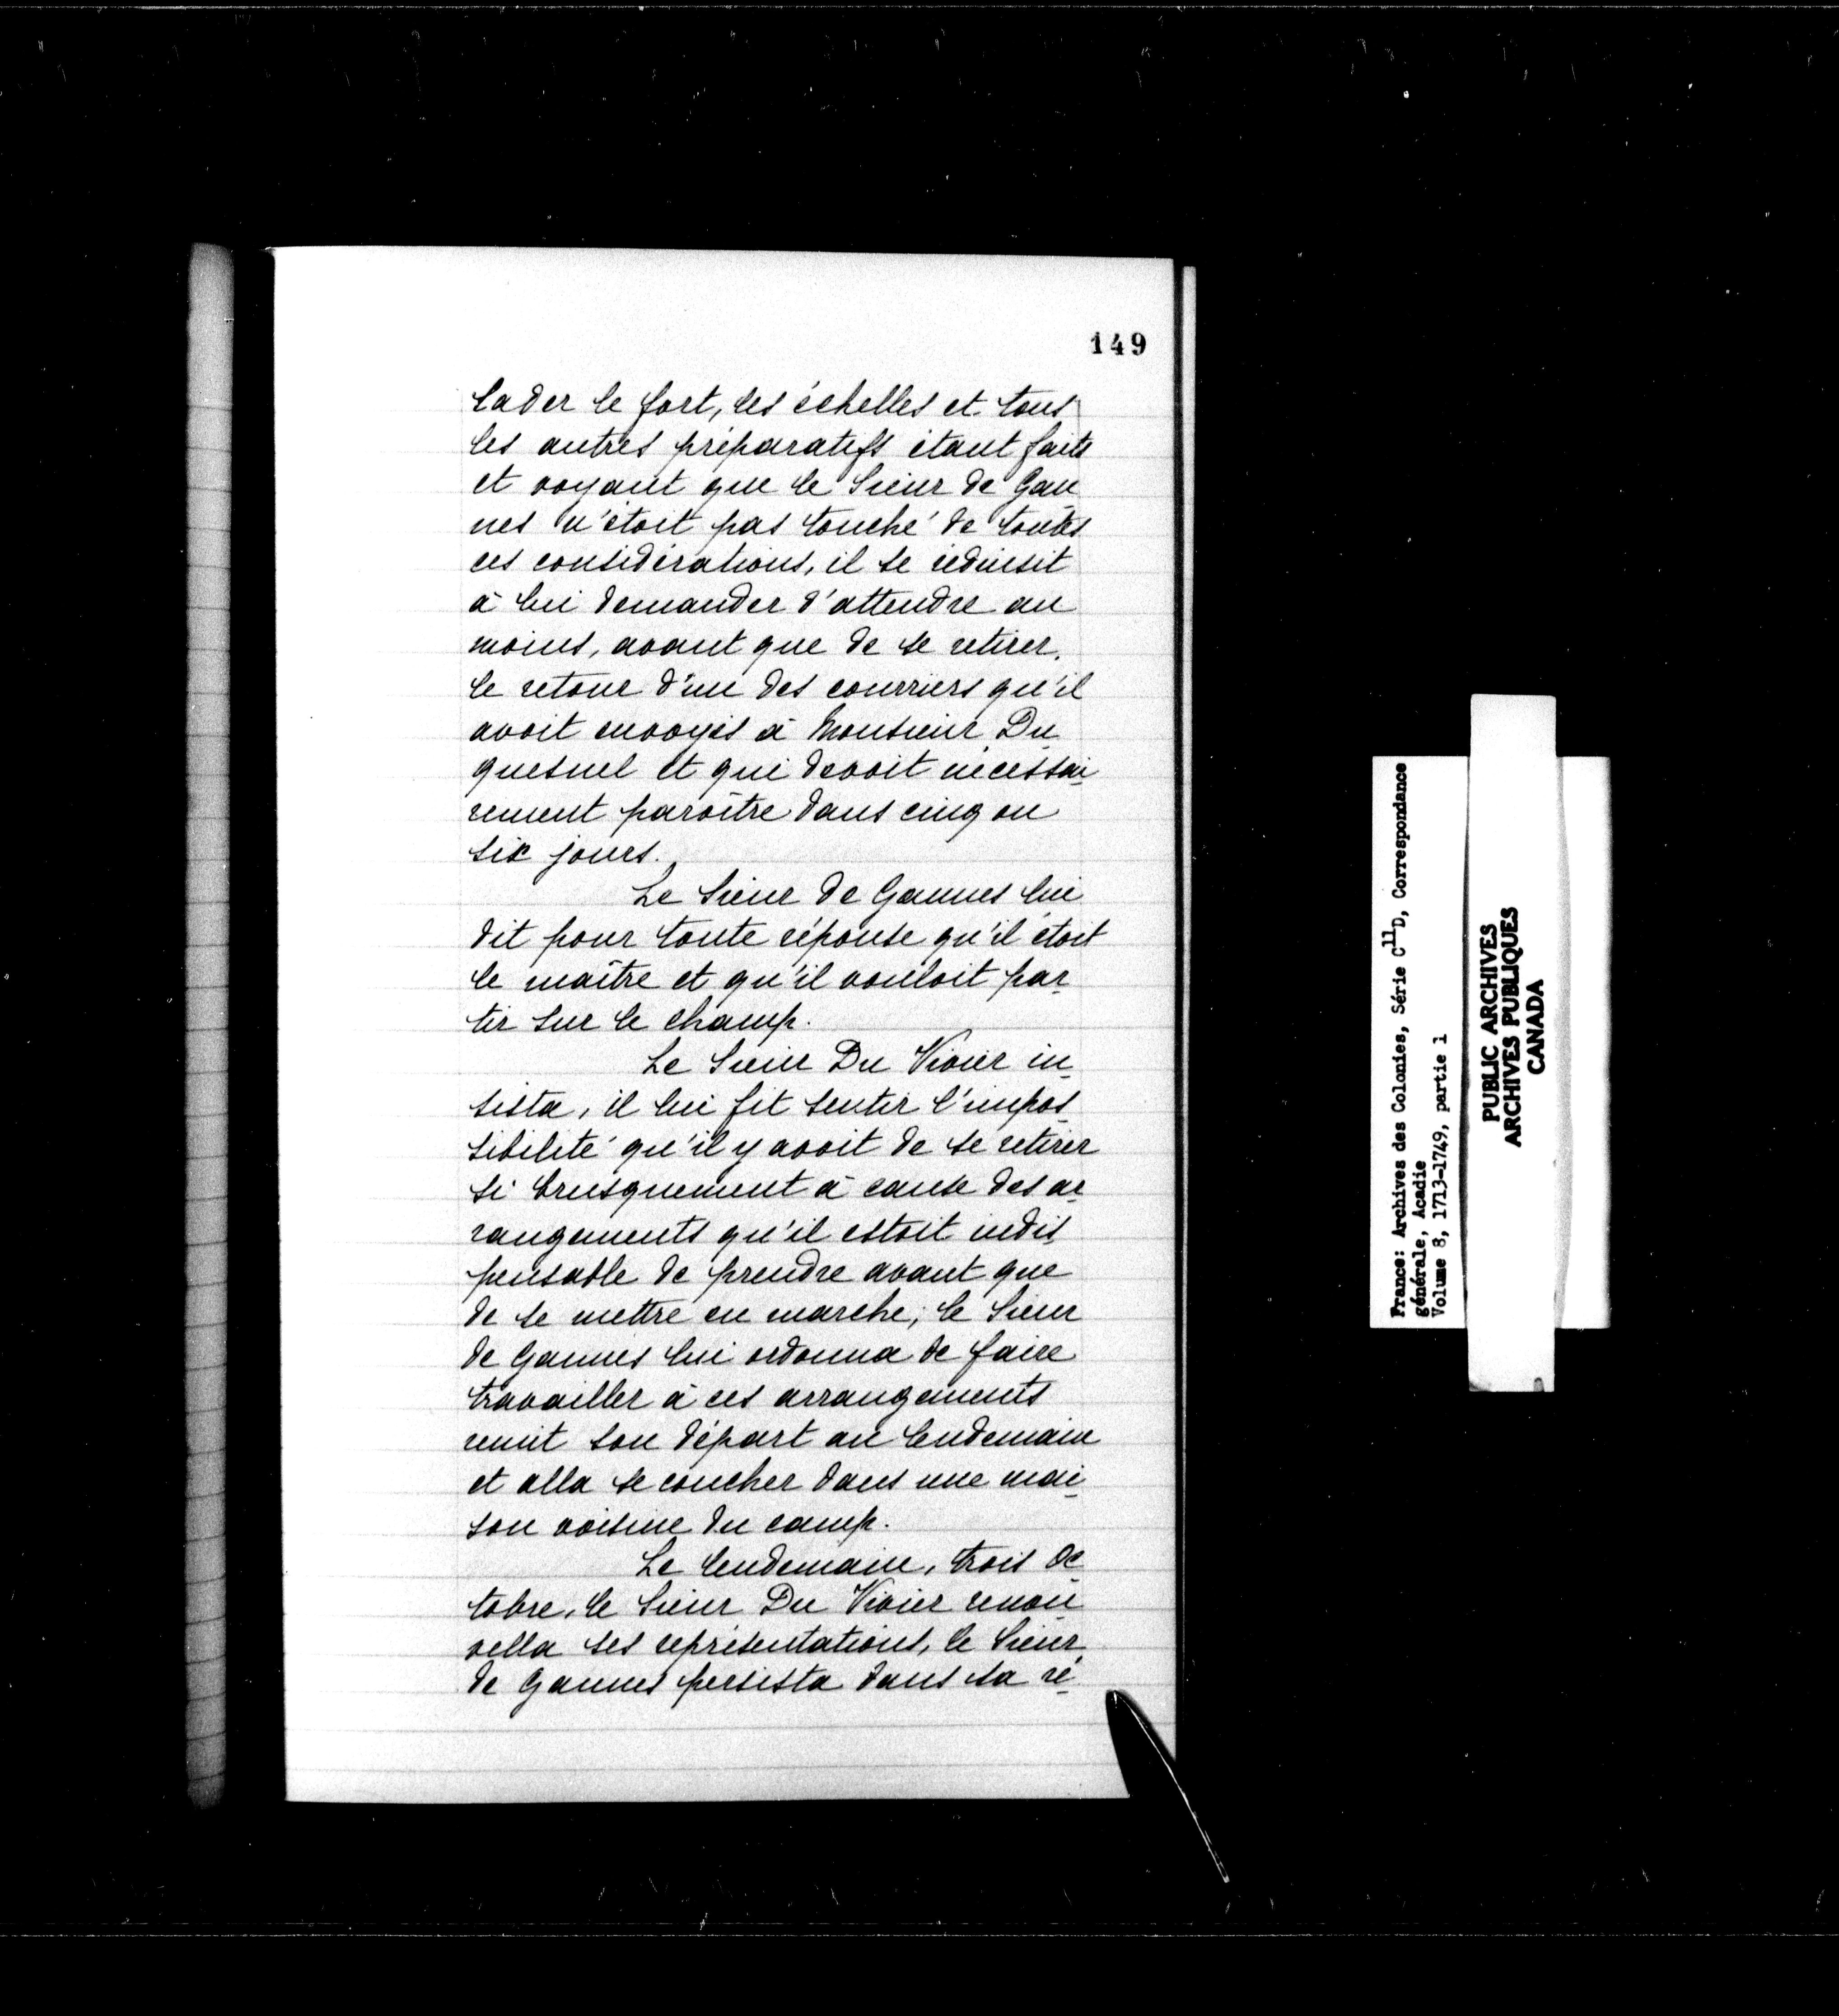 149
lader le fort, les échelles et tous
les autres préparatifs étant faits
et voyant que le Sieur de Gan
nes n'étoit pas touché de toutes
ces considérations, il se réduisit
à lui demander d'attendre au
moins, avant que de se retirer,
le retour d'un des courriers qu'il
avoit envoyés à Monsieur Du
quesnel et qui devoit nécessai
rement paroître dans cinq ou
six jours.
Le Sieur de Gannes lui
dit pour toute réponse qu'il étoit
le maître et qu'il vouloit par
tir sur le champ.
Le Sieur Du Vivier in
sista, il lui fit sentir l'impos
sibilité qu'il y avoit de se retirer
si brusquement à cause des ar
rangements qu'il estoit indis
pensable de prendre avant que
de se mettre en marche; le Sieur
de Gannes lui ordonna de faire
travailler à ces arrangements
remit son départ au lendemain
et alla se coucher dans une mai
son voisine du camp.
Le lendemain, trois Oc
tobre, le Sieur Du Vivier renou
vella ses représentations, le Sieur
de Gannes persista dans sa ré
France: Archives des Colonies, Série C11D, Correspondance
générale, Acadie
Volume 8, 1713-1749, partie 1
PUBLIC ARCHIVES
ARCHIVES PUBLIQUES
CANADA